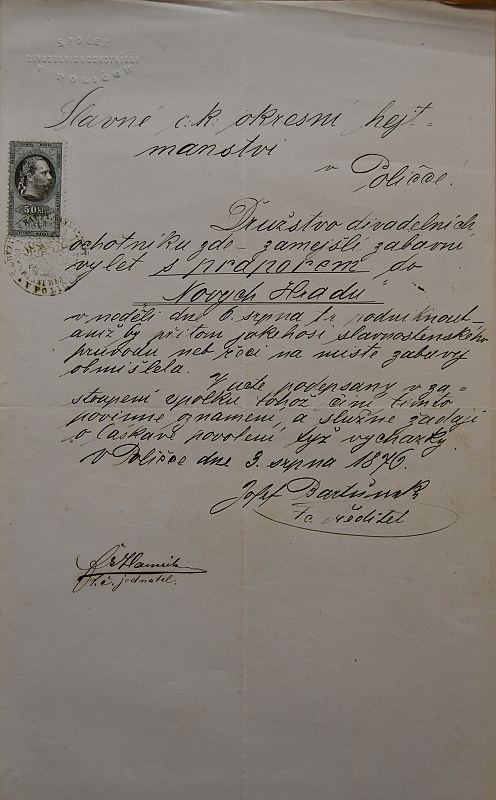 SPOLEK
DIVADELNÍCH OCHOTNÍKŮV
V POLIČCE
Slavné c. k. okresní hejt-
manství
v Poličce.
50 kr
Družstvo divadelních
ochotníku zde – zamejšlí zabavní
vylet s praporem do
"Nových Hradů"
v neděli dne 6. srpna podniknout
aniž by přitom jakehosi slavnostenského
průvodu neb řeči na miste zabavy
obmišlela.
V ucte podepsany v za-
stoupení spolku tohož činí timto
povinne oznamení, a služně žadají
o laskavé povolení tyž vychazky.
V Poličce dne 3. srpna 1876.
Josef Bartůněk
t. č. ředitel
t. č. jednatel.